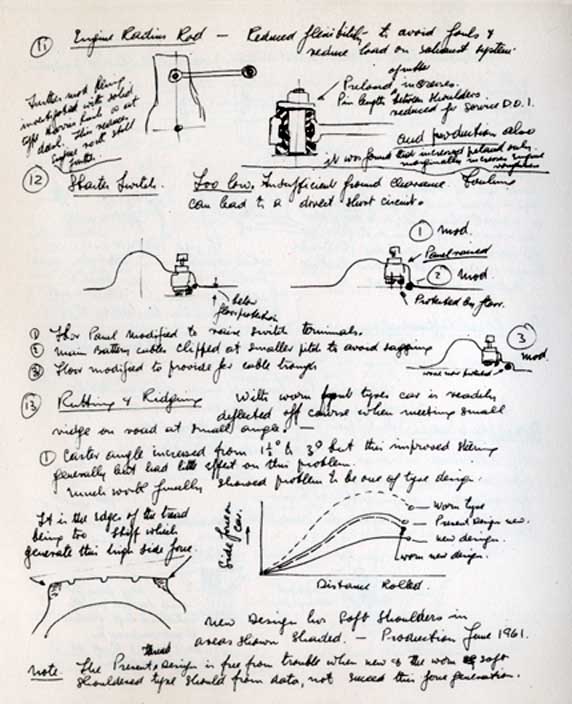 11 Engine Radius Rod — Reduced flexibility to avoid fouls &
reduce load on exhaust system.
of rubber
Preload increases.
Pin length between shoulders.
reduced for Service D.O.1.
and production also
it was found that increased preload only
marginally increases engine
Further mod being
investigated with solid
at
dead. This reduces
engine rock still
further
12 Starter Switch. Too low. Insufficient ground clearance. Fouling
can lead to a direct short circuit.
1 mod.
Panel raised
2 mod.
Protected by floor.
below
floor protection
1 Floor Panel modified to raise switch terminals.
2 main Battery cables clipped at smaller pitch to avoid sagging
3 Floor modified to provide for cable trough
3
mod.
13 Rutting & Ridging With worn front tyres car is readily
deflected off course when meeting small
ridge on road at small angle. —
1 Caster angle increased from 1½° to 3° but this improved steering
generally but had little effect on this problem.
much work finally showed problem to be one of tyre design.
It is the edges of the tread
being too stiff which
generate this high side force.
Side force on
car.
Worn tyre
Present design new.
new design.
worn new design.
Distance Rolled.
New Design has Soft Shoulders in
areas shown shaded. — Production June 1961.
tread
Note. The Present design is free from trouble when new & the worn soft
shouldered tyre should from data, not exceed this force generation.